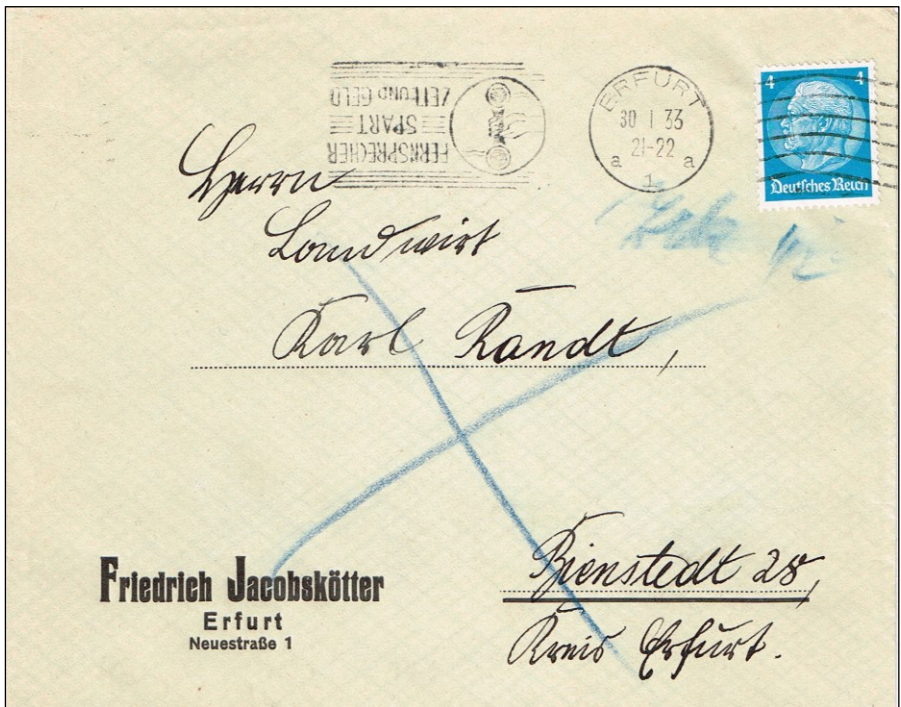 FERNSPRECHER
SPART
ZEIT UND GELD
ERFURT
30 1 33
21-22
a a
1
4 4
Deutsches Reich
Herrn
Landwirt
Karl Randt,
Bienstedt 28,
Kreis Erfurt.
Friedrich Jacobskötter
Erfurt
Neuestraße 1